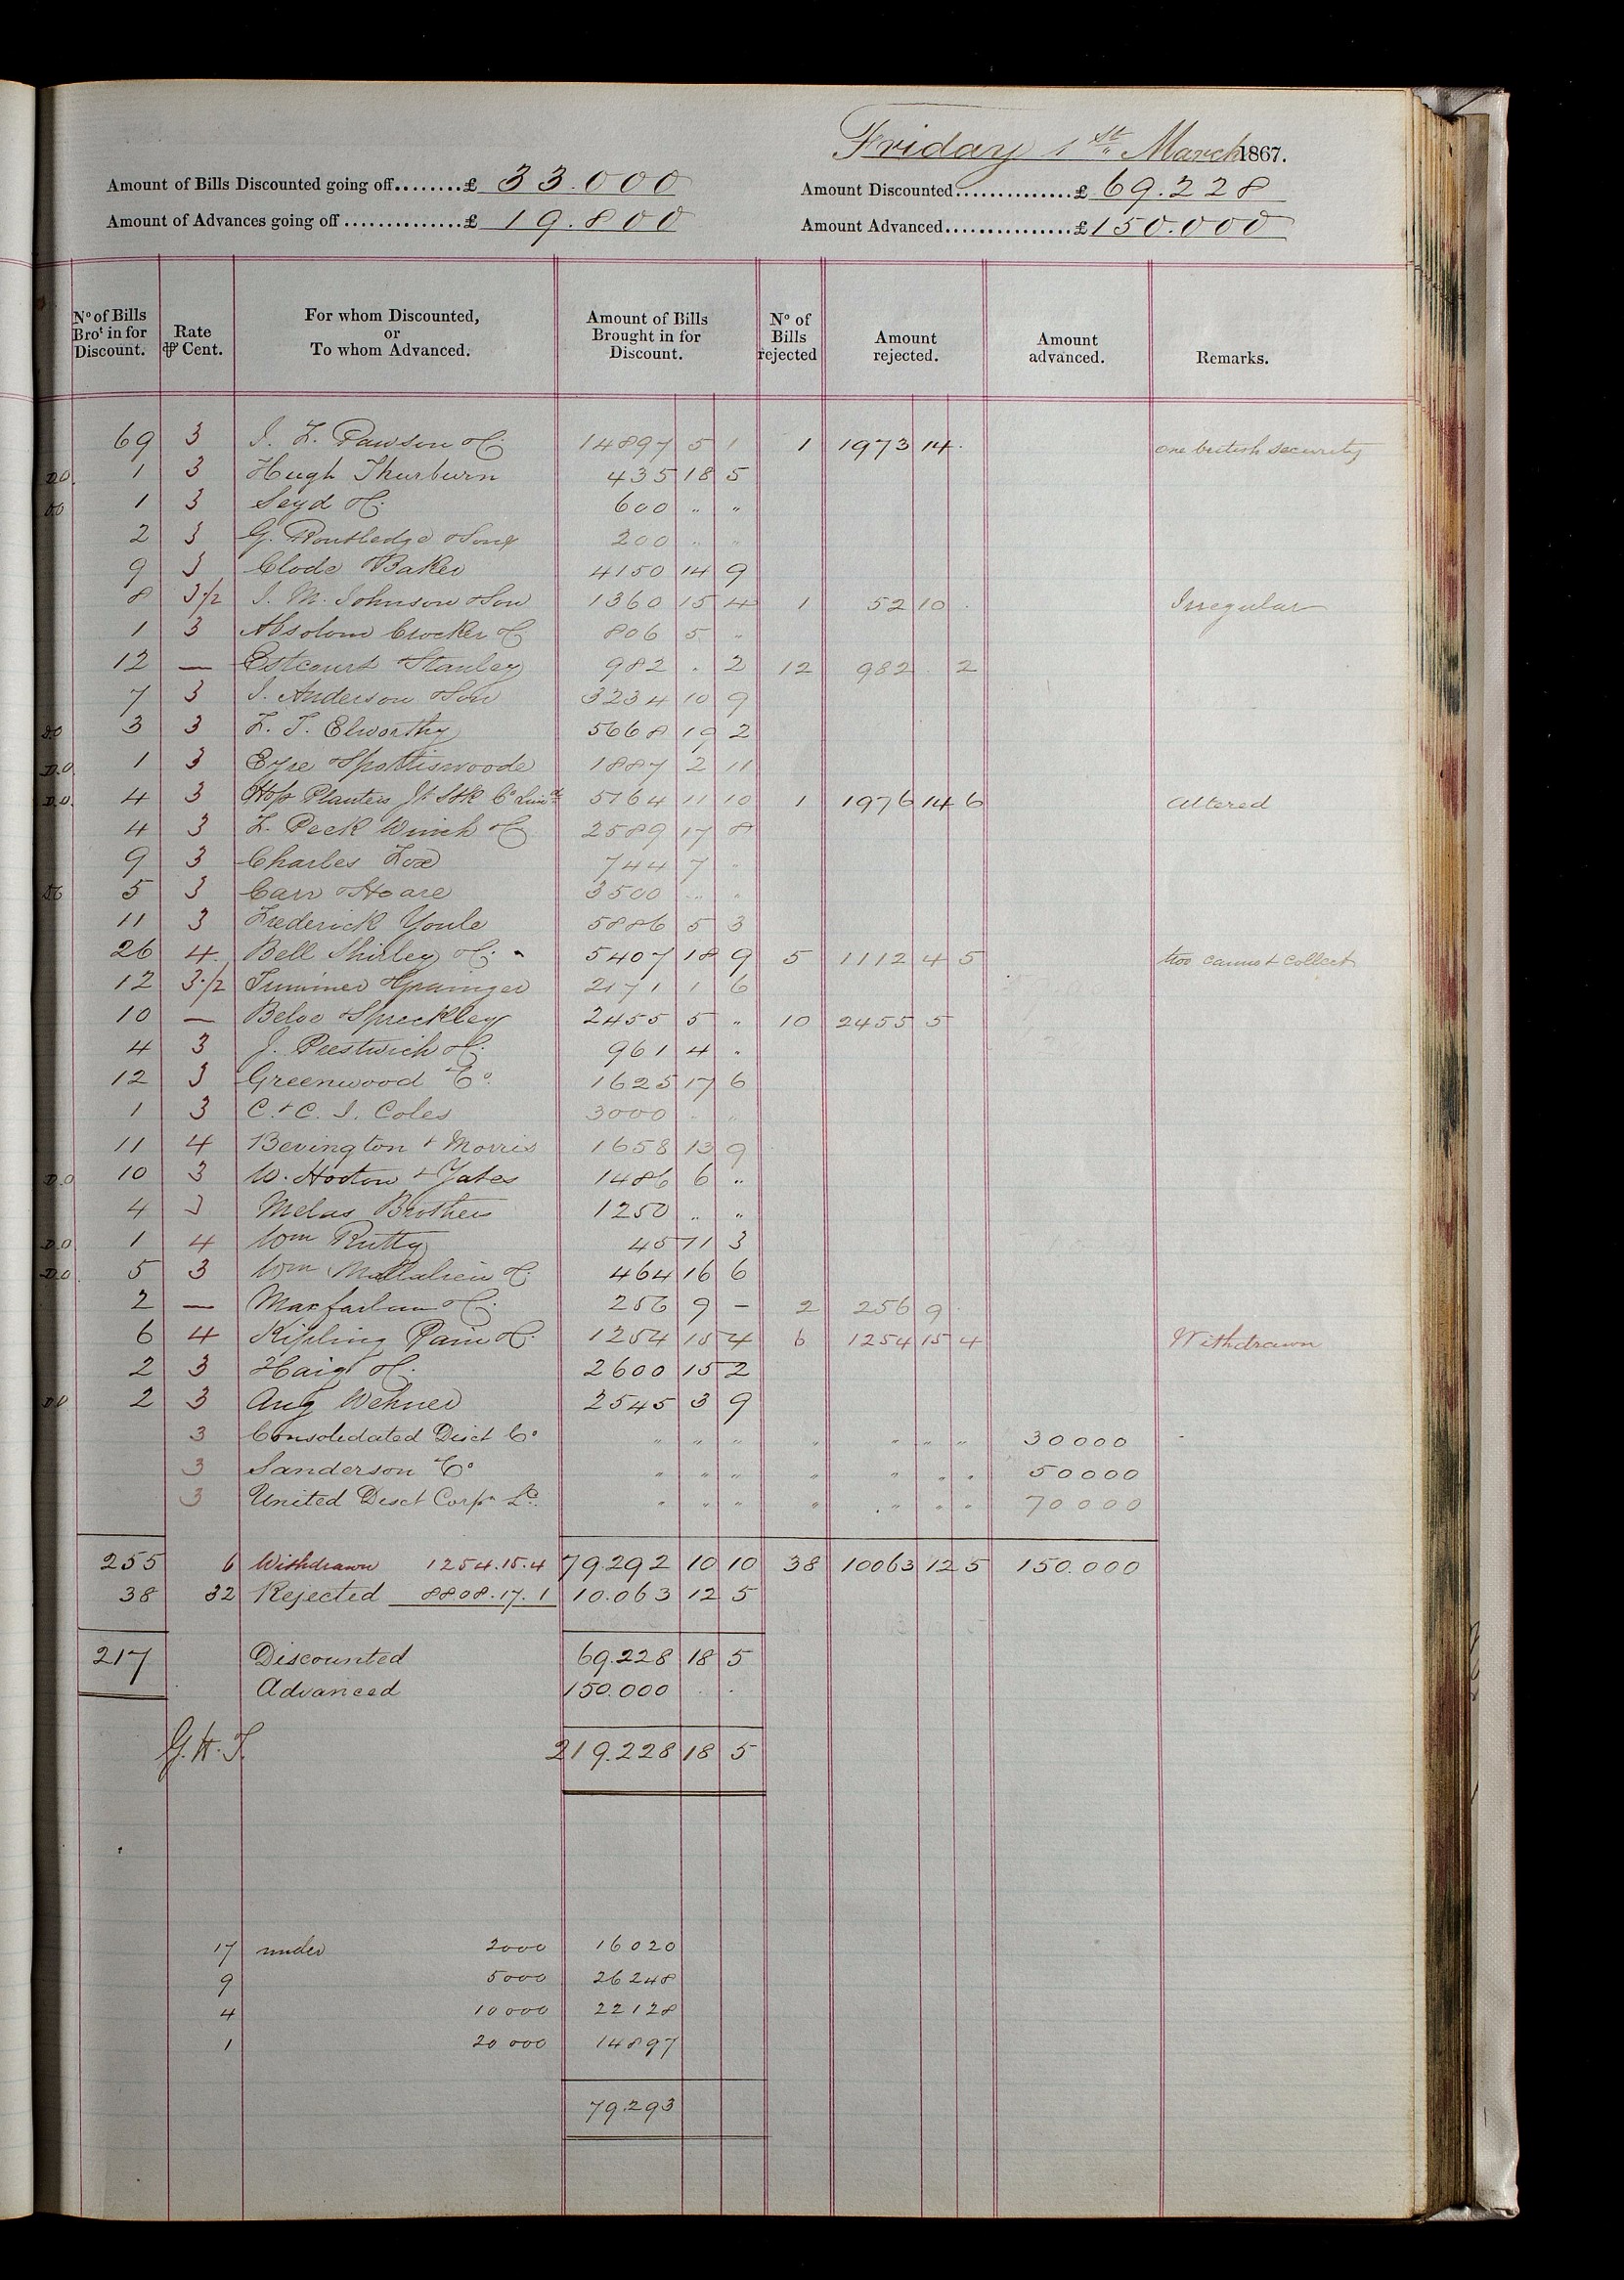 Friday 1st March 1867.
Amount of Bills Discounted going off........£ 33.000 Amount Discounted..............£ 69.228
Amount of Advances going off ..............£ 19.800 Amount Advanced................£ 150.000
No of Bills Brot in for Discount. Rate ⅌ Cent. For whom Discounted, or To whom Advanced. Amount of Bills Brought in for Discount. No of Bills rejected Amount rejected. Amount advanced. Remarks.
69 3 J. F. Pawson & Co. 14897 5 1 1 1973 14 . one british security
D.O. 1 3 Hugh Thurburn 435 18 5
D.O 1 3 Seyd & Co. 600 " "
2 3 G. Routledge & Sons 200 " "
9 3 Clode & Baker 4150 14 9
8 3·/2 J. M. Johnson & Son 1360 15 4 1 52 10 . Irregular
1 3 Absolom Crocker & Co 806 5 "
12 — Estcourt & Stanley 982 . 2 12 982 . 2
7 3 J. Anderson & Son 3234 10 9
D.O 3 3 F. T. Elworthy 5668 19 2
D.O. 1 3 Eyre & Spottiswoode 1887 2 11
D.O. 4 3 Hop Planters Jt Stk Co Limd 5764 11 10 1 1976 14 6 Altered
4 3 F. Peek Winch & Co 2589 17 8
9 3 Charles Fox 744 7 "
D.O 5 3 Carr & Hoare 3500 " "
11 3 Frederick Youle 5886 5 3
26 4 Bell Shirley & Co. 5407 18 9 5 1112 4 5 two cannot collect
12 3·/2 Trimmer & Grainger 2171 1 6
10 — Beloe & Spreckley 2455 5 " 10 2455 5
4 3 J. Prestwich & Co. 961 4 "
12 3 Greenwood & Co. 1625 17 6
1 3 C. & C. J. Coles 3000 " "
11 4 Bevington & Morris 1658 13 9
D.O 10 3 W. Hooton & Yates 1486 6 "
4 3 Melas Brothers 1250 " "
D.O 1 4 Wm Rutty 45 11 3
D.O. 5 3 Wm Mallalieu & Co. 464 16 6
2 — Macfarlane & Co. 256 9 — 2 256 9 .
6 4 Kipling Pain & Co. 1254 15 4 6 1254 15 4 Withdrawn
2 3 Haig & Co. 2600 15 2
D.O 2 3 Aug Wehner 2545 3 9
3 Consolidated Disct Co " " " " " " " 30000
3 Sanderson & Co " " " " " " " 50000
3 United Disct Corpn Ld. " " " " " " " 70000
255 6 Withdrawn 1254.15.4 79.292 10 10 38 10063 12 5 150.000
38 32 Rejected 8808.17.1 10.063 12 5
217 Discounted 69.228 18 5
Advanced 150.000 . .
G.H.T. 219.228 18 5
17 under 2000 16020
9 5000 26248
4 10000 22128
1 20000 14897
79.293